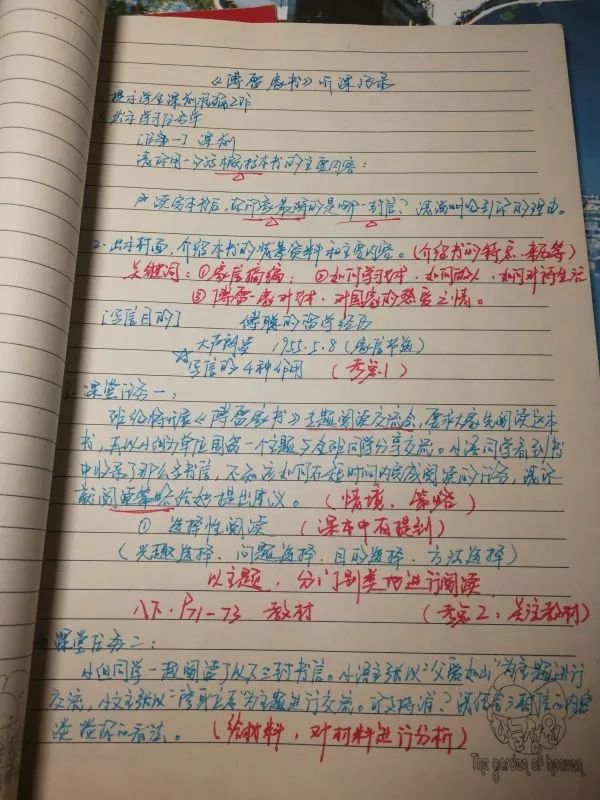 《傅雷家书》听课记录
展示学生课前准备工作
1. 出示学习任务单
[任务一] 课前
请你用一句话概括本书的主要内容:
读完本书后,你印象最深的是哪一封信?请说明吸引你的理由。
2. 出示封面,介绍本书的背景资料和主要内容。(介绍书的特点、来历等)
关键词:①家庭 ②如何学习艺术、如何做人、如何对待生活
③傅雷家对艺术、对国家的热爱之情。
[写信目的] 傅聪的留学经历
大声朗读 1955.5.8(家庭书简)
☆写信的4种作用 (考点1)
3. 课堂任务一:
班级将开展《傅雷家书》主题阅读交流会,要求大家先阅读这本
书,再以小组为单位围绕一个主题与全班同学分享交流。小语同学看到书
中收录了那么多书信,不知该如何在短时间内完成阅读的任务,请你
就阅读策略给她提出建议。 (情境、策略)
①选择性阅读 (课本中有提到)
(兴趣选择、问题选择、目的选择、方法选择)
以主题,分门别类地进行阅读
八下·P71-73 教材 (考点2:关注教材)
课堂任务二:
小组同学一起阅读了以下三封书信。小语主张以“父爱如山”为主题进行
交流,小文主张以“ ”为主题进行交流。你支持谁?请结合三封信的内容
谈谈你的看法。 (给材料,对材料进行分析)
The garden of heaven